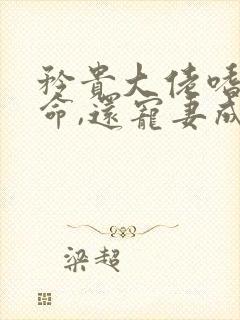 矜貴大佬嗜
命,還寵妻成
梁超